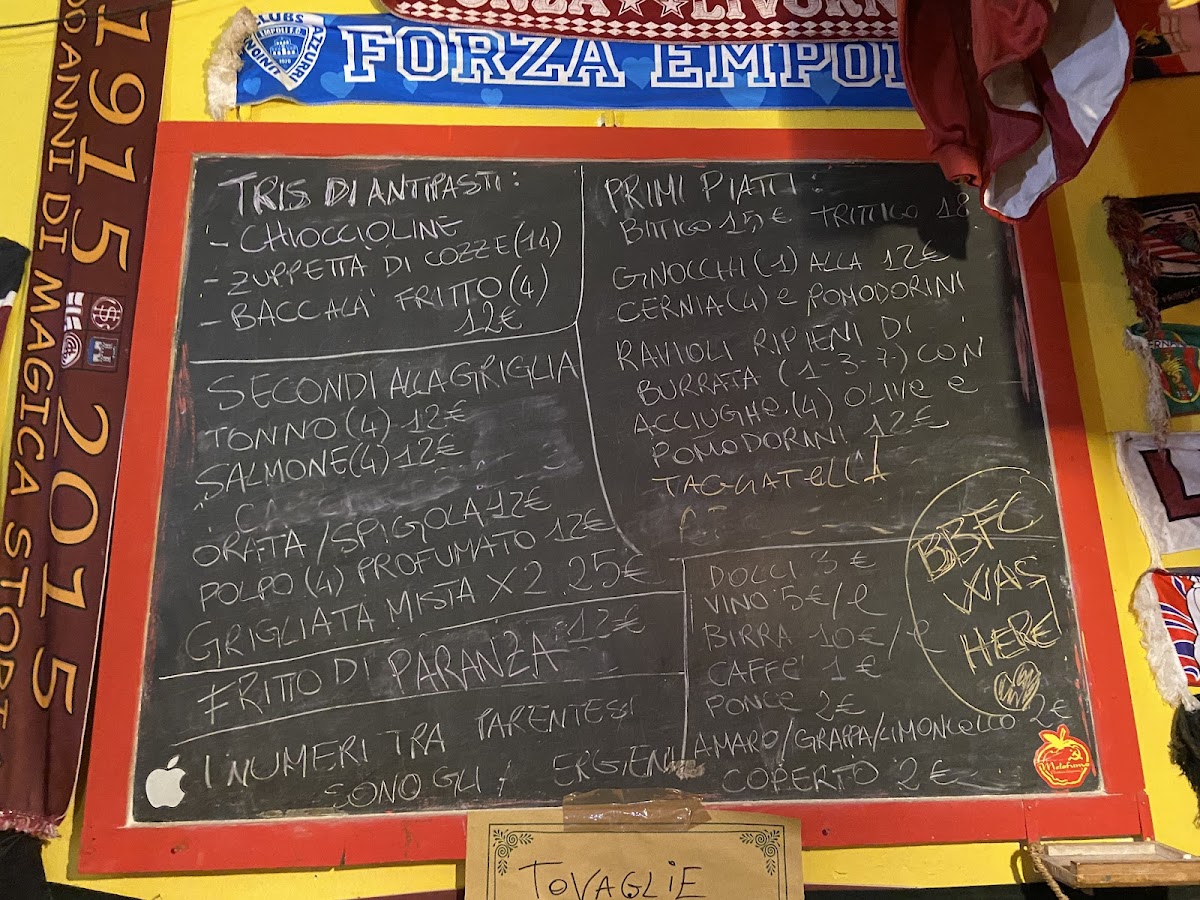 FORZA EMPOLI
CLUBS
AZZURRI
UNION
EMPOLI F.C.
1915 2015
100 ANNI DI MAGICA STORI
TRIS DI ANTIPASTI:
- CHIOCCIOLINE
- ZUPPETTA DI COZZE (14)
- BACCALA' FRITTO (4)
12€
SECONDI ALLA GRIGLIA
TONNO (4) 12€
SALMONE (4) 12€
ORATA / SPIGOLA 12€
POLPO (4) PROFUMATO 12€
GRIGLIATA MISTA X2 25€
FRITTO DI PARANZA 12€
I NUMERI TRA PARENTESI
SONO GLI ERGIENI
PRIMI PIATTI:
BITTICO 15€ TRITTICO 18
GINOCCHI (1) ALLA 12€
CERNIA (4) e POMODORINI
RAVIOLI RIPIENI DI
BURRATA (1-3-7) CON
ACCIUGHE (4) OLIVE e
POMODORINI 12€
TAGGIATELLA
DOLCI 3€
VINO 5€/l
BIRRA 10€/l
CAFFE' 1€
PONCE 2€
AMARO/GRAPPA/LIMONCELLO 2€
COPERTO 2€
BBFC
WAS
HERE
TOVAGLIE